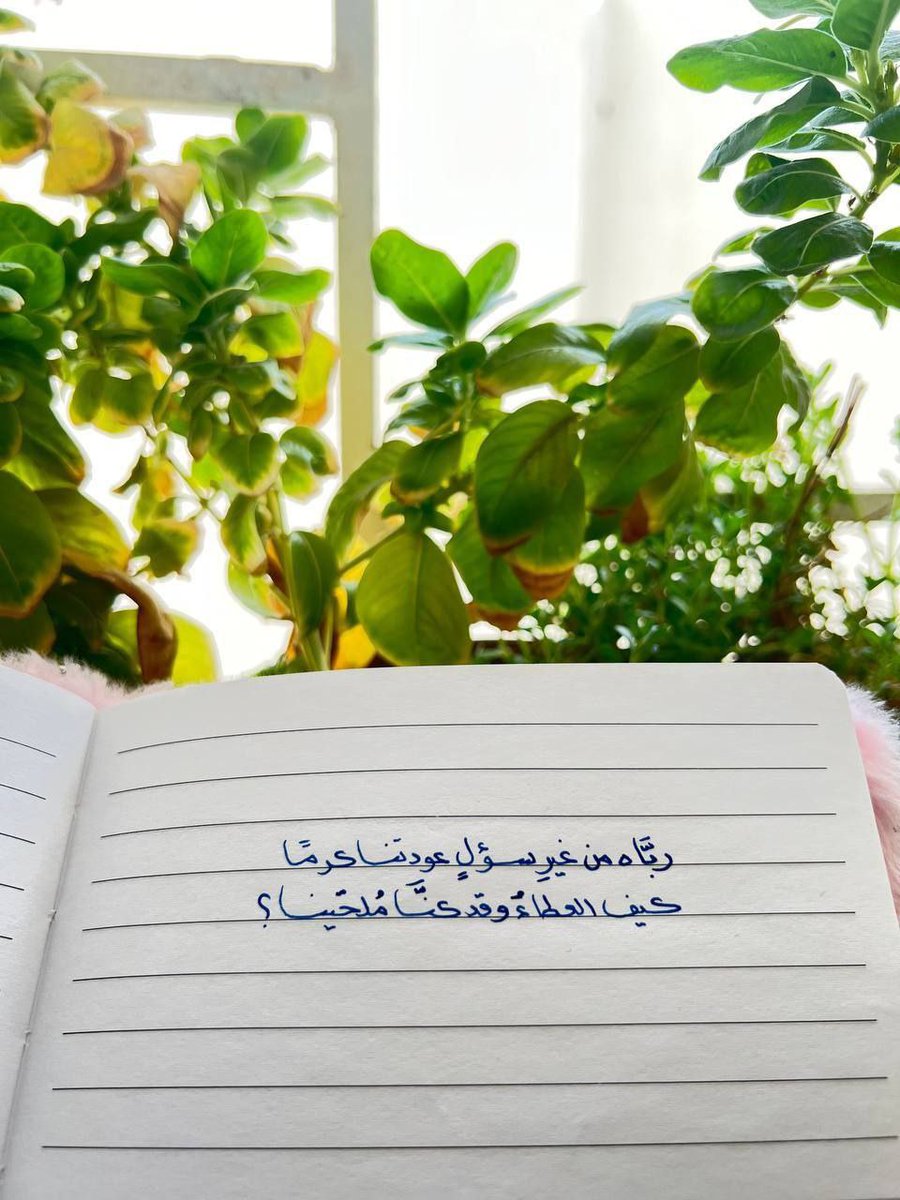 ربَّاه من غيرِ سؤلٍ عودتنا كرمًا
كيف العطاءُ وقد كنَّا مُلحّينا؟